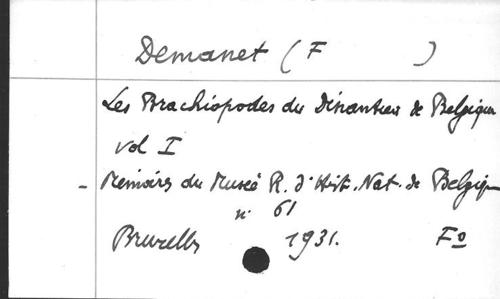 Demanet (F )
Les Brachiopodes du Dinantien de Belgique
vol I
- Memoirs du Museé R. d'Hist. Nat. de Belgique
n° 61
Bruxelles 1931. Fº